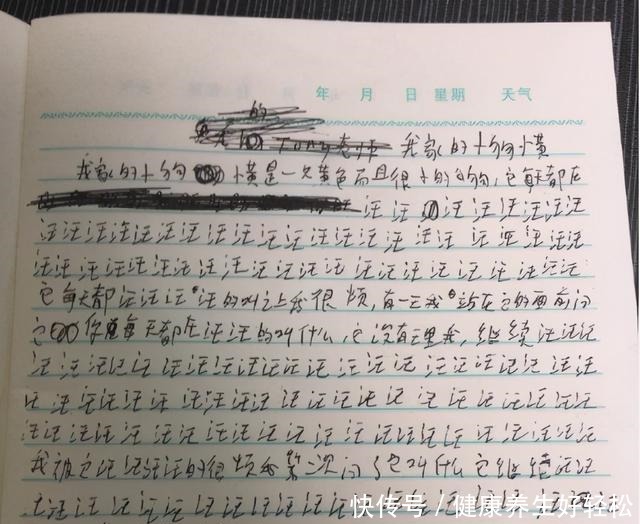 年 月 日 星期 天气
的
Tony老师 我家的小狗小黄
我家的小狗小黄是一只黄色而且很小的狗狗,它每天都在
汪汪汪汪汪汪汪汪
汪汪汪汪汪汪汪汪汪汪汪汪汪汪汪汪汪汪汪汪汪
汪汪汪汪汪汪汪汪汪汪汪汪汪汪汪汪汪汪汪汪汪
它每天都汪汪汪汪的叫让我很烦,有一天我站在它的面前问
它你每天都在汪汪的叫什么,它没有理我,继续汪汪汪
汪汪汪汪汪汪汪汪汪汪汪汪汪汪汪汪汪汪汪汪
汪汪汪汪汪汪汪汪汪汪汪汪汪汪汪汪汪汪汪汪
汪汪汪汪汪汪汪汪汪汪汪汪汪汪汪汪汪汪汪汪汪
我被它汪汪汪汪的很烦我第二次问了它叫什么它继续汪汪
汪汪汪汪汪汪汪汪汪汪汪汪
快传号/健康养生好轻松